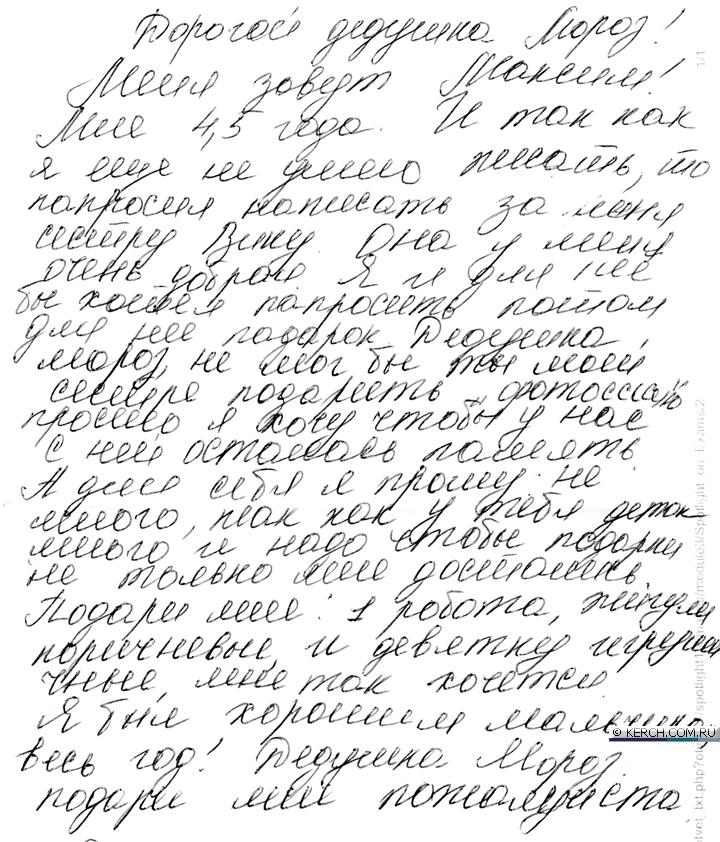 Дорогой дедушка Мороз!
Меня зовут Максим!
Мне 4,5 года. И так как
я еще не умею писать, то
попросил написать за меня
сестру Вику. Она у меня
очень добрая Я и для нее
бы хотел попросить потом
для нее подарок Дедушка
мороз, не мог бы ты моей
сестре подарить фотосессию
просто я хочу чтобы у нас
с ней осталась память
А для себя я прошу не
много, так как у тебя деток
много и надо чтобы подарки
не только мне достались
Подари мне: 1 робота, жигули
коричневые, и девятку игруше
чные, мне так хочется
Я был хорошим мальчиком
весь год! Дедушка Мороз
подари мне пожалуйста
© KERCH.COM.RU
1/1